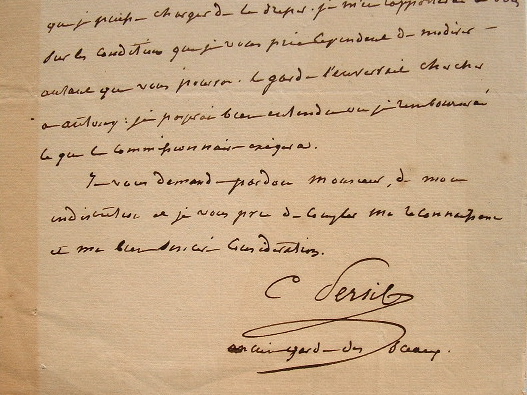 que je puisse charger de le dresser. je m'en rapporterai à vous
sur les conditions que je vous prie cependant de modérer
autant que vous pourrez. le garde l'enverrait chercher
a antony: je payerai bien entendu ou je rembourserai
ce que le commissionnaire exigera.
Je vous demande pardon monsieur, de mon
indiscrétion et je vous prie de compter ma reconnaissance
et ma bien sincère considération.
C Persil
ancien garde des sceaux.